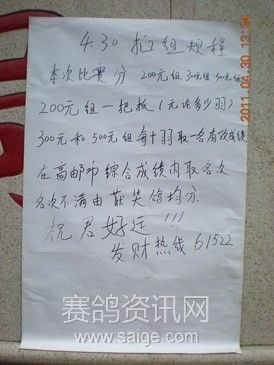 4.30 指组规程
本次比赛分 200元组 300元组 500元组
200元组一把抓（无论多少羽）
300元和500元组每十羽取一名有效成绩
在高邮市综合成绩内取名次
名次不满由获奖鸽均分
祝君好运!!!
发财热线 61522
2011.04.30 13:24
赛鸽资讯网
www.saige.com